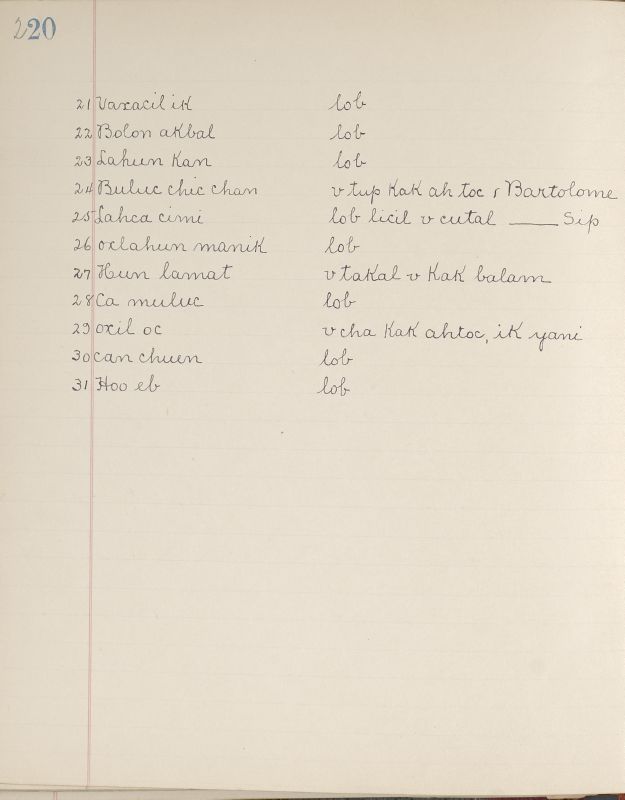 220
21 Vaxacil ik lob
22 Bolon akbal lob
23 Lahun Kan lob
24 Buluc chic chan v tup Kak ah toc s Bartolome
25 Lahca cimi lob licil v cutal ____ Sip
26 oxlahun manik lob
27 Hun lamat v takal v Kak balam
28 Ca muluc lob
29 oxil oc v cha Kak ahtoc, ik yani
30 can chuen lob
31 Hoo eb lob